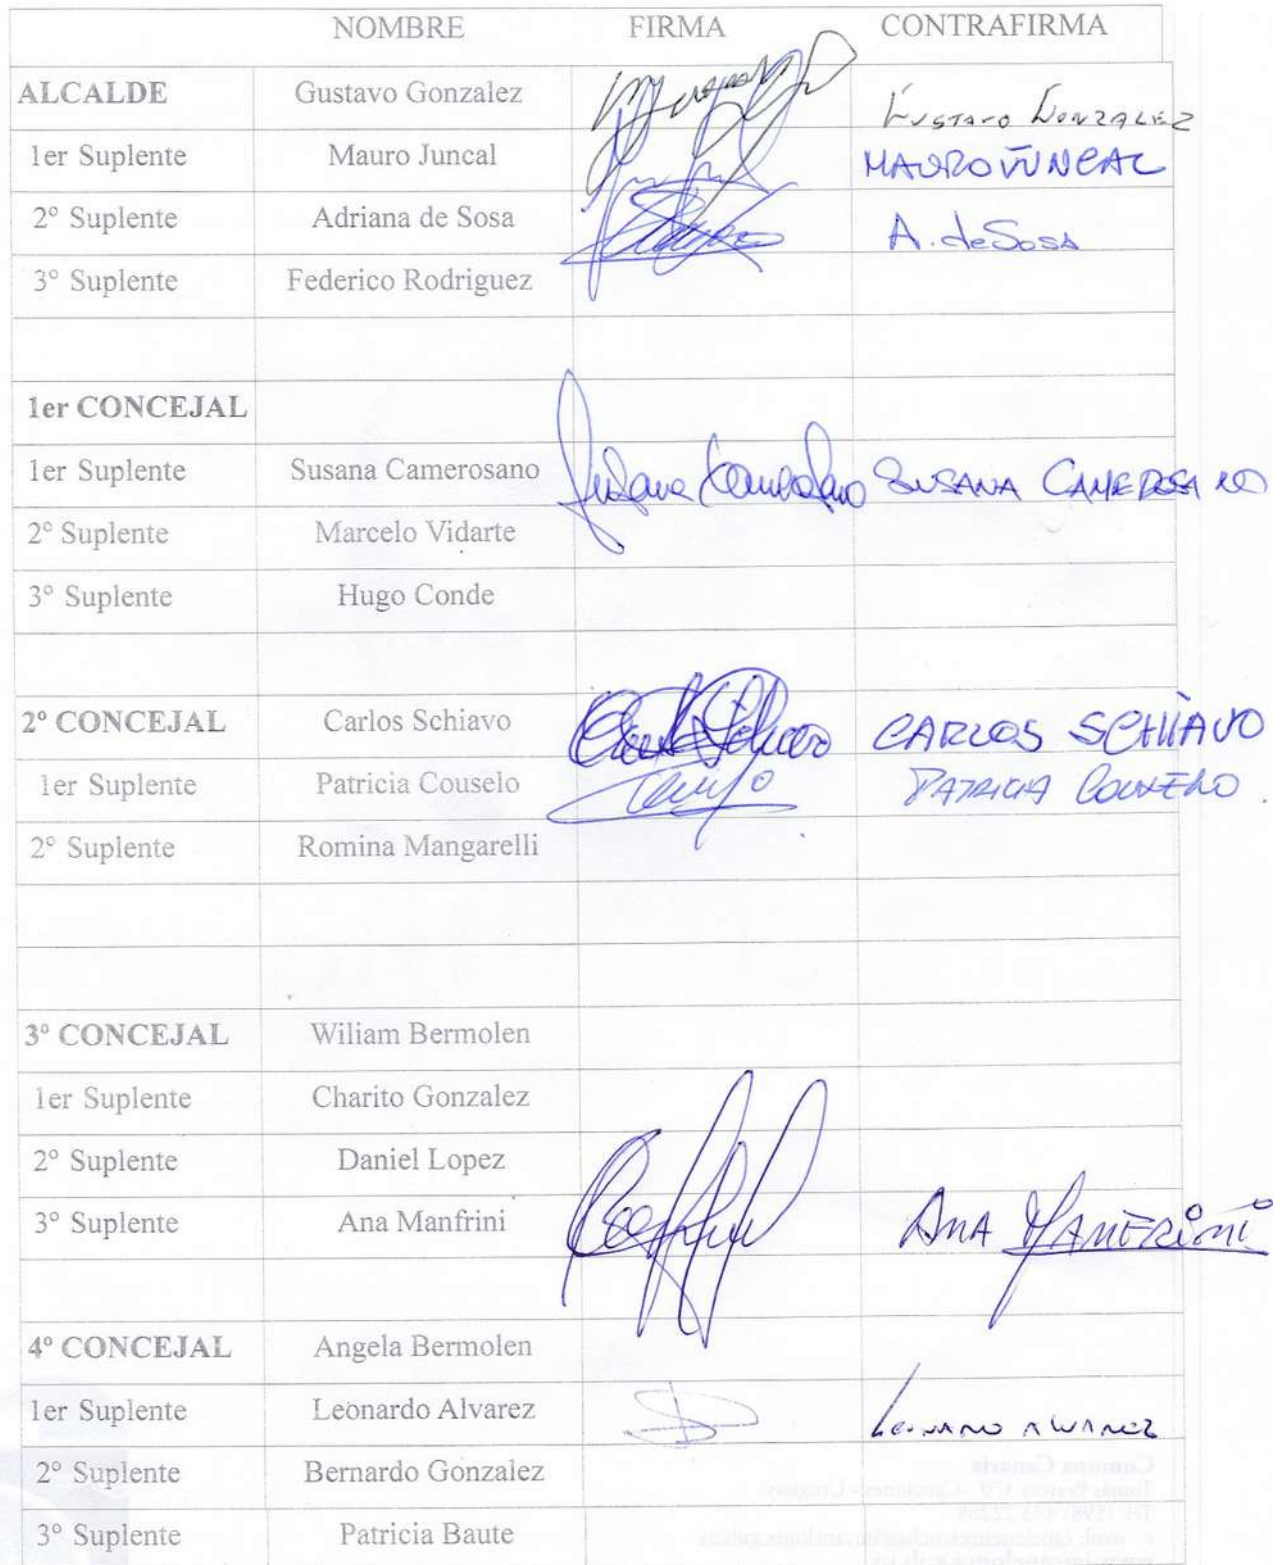 NOMBRE FIRMA CONTRAFIRMA
ALCALDE Gustavo Gonzalez Gustavo Gonzalez
1er Suplente Mauro Juncal MAURO JUNCAL
2º Suplente Adriana de Sosa A. de Sosa
3º Suplente Federico Rodriguez
1er CONCEJAL
1er Suplente Susana Camerosano Susana Camerosano SUSANA CAMEROSANO
2º Suplente Marcelo Vidarte
3º Suplente Hugo Conde
2º CONCEJAL Carlos Schiavo CARLOS SCHIAVO
1er Suplente Patricia Couselo PATRICIA COUSELO
2º Suplente Romina Mangarelli
3º CONCEJAL Wiliam Bermolen
1er Suplente Charito Gonzalez
2º Suplente Daniel Lopez
3º Suplente Ana Manfrini ANA MANFRINI
4º CONCEJAL Angela Bermolen
1er Suplente Leonardo Alvarez LEONARDO ALVAREZ
2º Suplente Bernardo Gonzalez
3º Suplente Patricia Baute